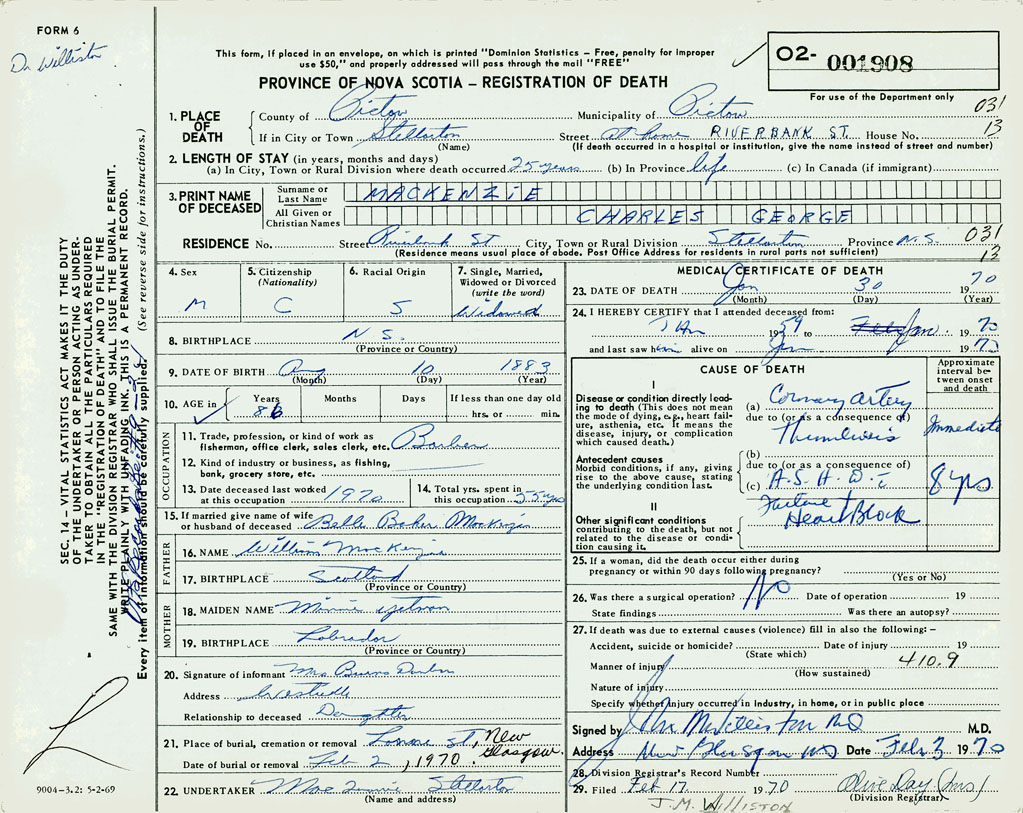 FORM 6
Dr Williston
This form, if placed in an envelope, on which is printed "Dominion Statistics – Free, penalty for improper
use $50," and properly addressed will pass through the mail "FREE"
O2- 001908
For use of the Department only
PROVINCE OF NOVA SCOTIA – REGISTRATION OF DEATH
031
13
1. PLACE OF DEATH
County of Pictou Municipality of Pictou
If in City or Town Stellarton Street at home RIVERBANK ST. House No.
(Name) (If death occurred in a hospital or institution, give the name instead of street and number)
2. LENGTH OF STAY (in years, months and days)
(a) In City, Town or Rural Division where death occurred 25 years (b) In Province life (c) In Canada (if immigrant)
3. PRINT NAME OF DECEASED
Surname or Last Name MACKENZIE
All Given or Christian Names CHARLES GEORGE
RESIDENCE No. Street Riverbank St City, Town or Rural Division Stellarton Province N.S. 031
(Residence means usual place of abode. Post Office Address for residents in rural parts not sufficient) 13
4. Sex M
5. Citizenship (Nationality) C
6. Racial Origin S
7. Single, Married, Widowed or Divorced (write the word) Widowed
8. BIRTHPLACE N.S.
(Province or Country)
9. DATE OF BIRTH Aug 10 1883
(Month) (Day) (Year)
10. AGE Years 86 Months Days If less than one day
hrs. or min.
OCCUPATION
11. Trade, profession or kind of work as
fisherman, office clerk, sales clerk, etc. Barber
12. Kind of industry or business, as fishing,
bank, grocery store, etc.
13. Date deceased last worked
at this occupation 1970
14. Total yrs. spent in
this occupation 55 yrs
15. If married give name of wife
or husband of deceased Belle Baker MacKenzie
FATHER
16. NAME William MacKenzie
17. BIRTHPLACE Scotland
(Province or Country)
MOTHER
18. MAIDEN NAME Minnie
19. BIRTHPLACE Labrador
(Province or Country)
20. Signature of informant Mrs Burns
Address Westville
Relationship to deceased Daughter
21. Place of burial, cremation or removal St, New Glasgow
Date of burial or removal Feb 2, 1970.
22. UNDERTAKER Stellarton
(Name and address)
MEDICAL CERTIFICATE OF DEATH
23. DATE OF DEATH Jan 30 1970
(Month) (Day) (Year)
24. I HEREBY CERTIFY that I attended deceased from:
1959 to Jan 1970
and last saw him alive on Jan 1970
CAUSE OF DEATH
Approximate interval between onset and death
I
Disease or condition directly leading to death (This does not mean the mode of dying, e.g., heart failure, asthenia, etc. It means the disease, injury, or complication which caused death.
(a) Coronary artery
due to (or as a consequence of)
Thrombosis Immediate
Antecedent causes
Morbid conditions, if any, giving rise to the above cause, stating the underlying condition last.
(b)
due to (or as a consequence of)
(c) A.S.H.D. c 8 yrs
Failure +
Heart Block
II
Other significant conditions contributing to the death, but not related to the disease or condition causing it.
25. If a woman, did the death occur either during
pregnancy or within 90 days following pregnancy?
(Yes or No)
26. Was there a surgical operation? No Date of operation 19
State findings Was there an autopsy?
27. If death was due to external causes (violence) fill in also the following: –
Accident, suicide or homicide? Date of injury 19
(State which)
Manner of injury 410.9
(How sustained)
Nature of injury
Specify whether injury occurred in industry, in home, or in public place
Signed by John Williston MD M.D.
Address New Glasgow NS Date Feb 3 1970
28. Division Registrar's Record Number
29. Filed Feb 17 1970 Olive Day (Mrs)
(Division Registrar)
J.M. WILLISTON
SEC. 14 – VITAL STATISTICS ACT MAKES IT THE DUTY
OF THE UNDERTAKER OR PERSON ACTING AS UNDER-
TAKER TO OBTAIN ALL THE PARTICULARS REQUIRED
IN THE "REGISTRATION OF DEATH" AND TO FILE THE
SAME WITH THE DIVISION REGISTRAR WHO SHALL ISSUE THE BURIAL PERMIT.
WRITE PLAINLY WITH UNFADING INK. THIS IS A PERMANENT RECORD.
Every item of information should be carefully supplied. (See reverse side for instructions.)
9004-3.2: 5-2-69